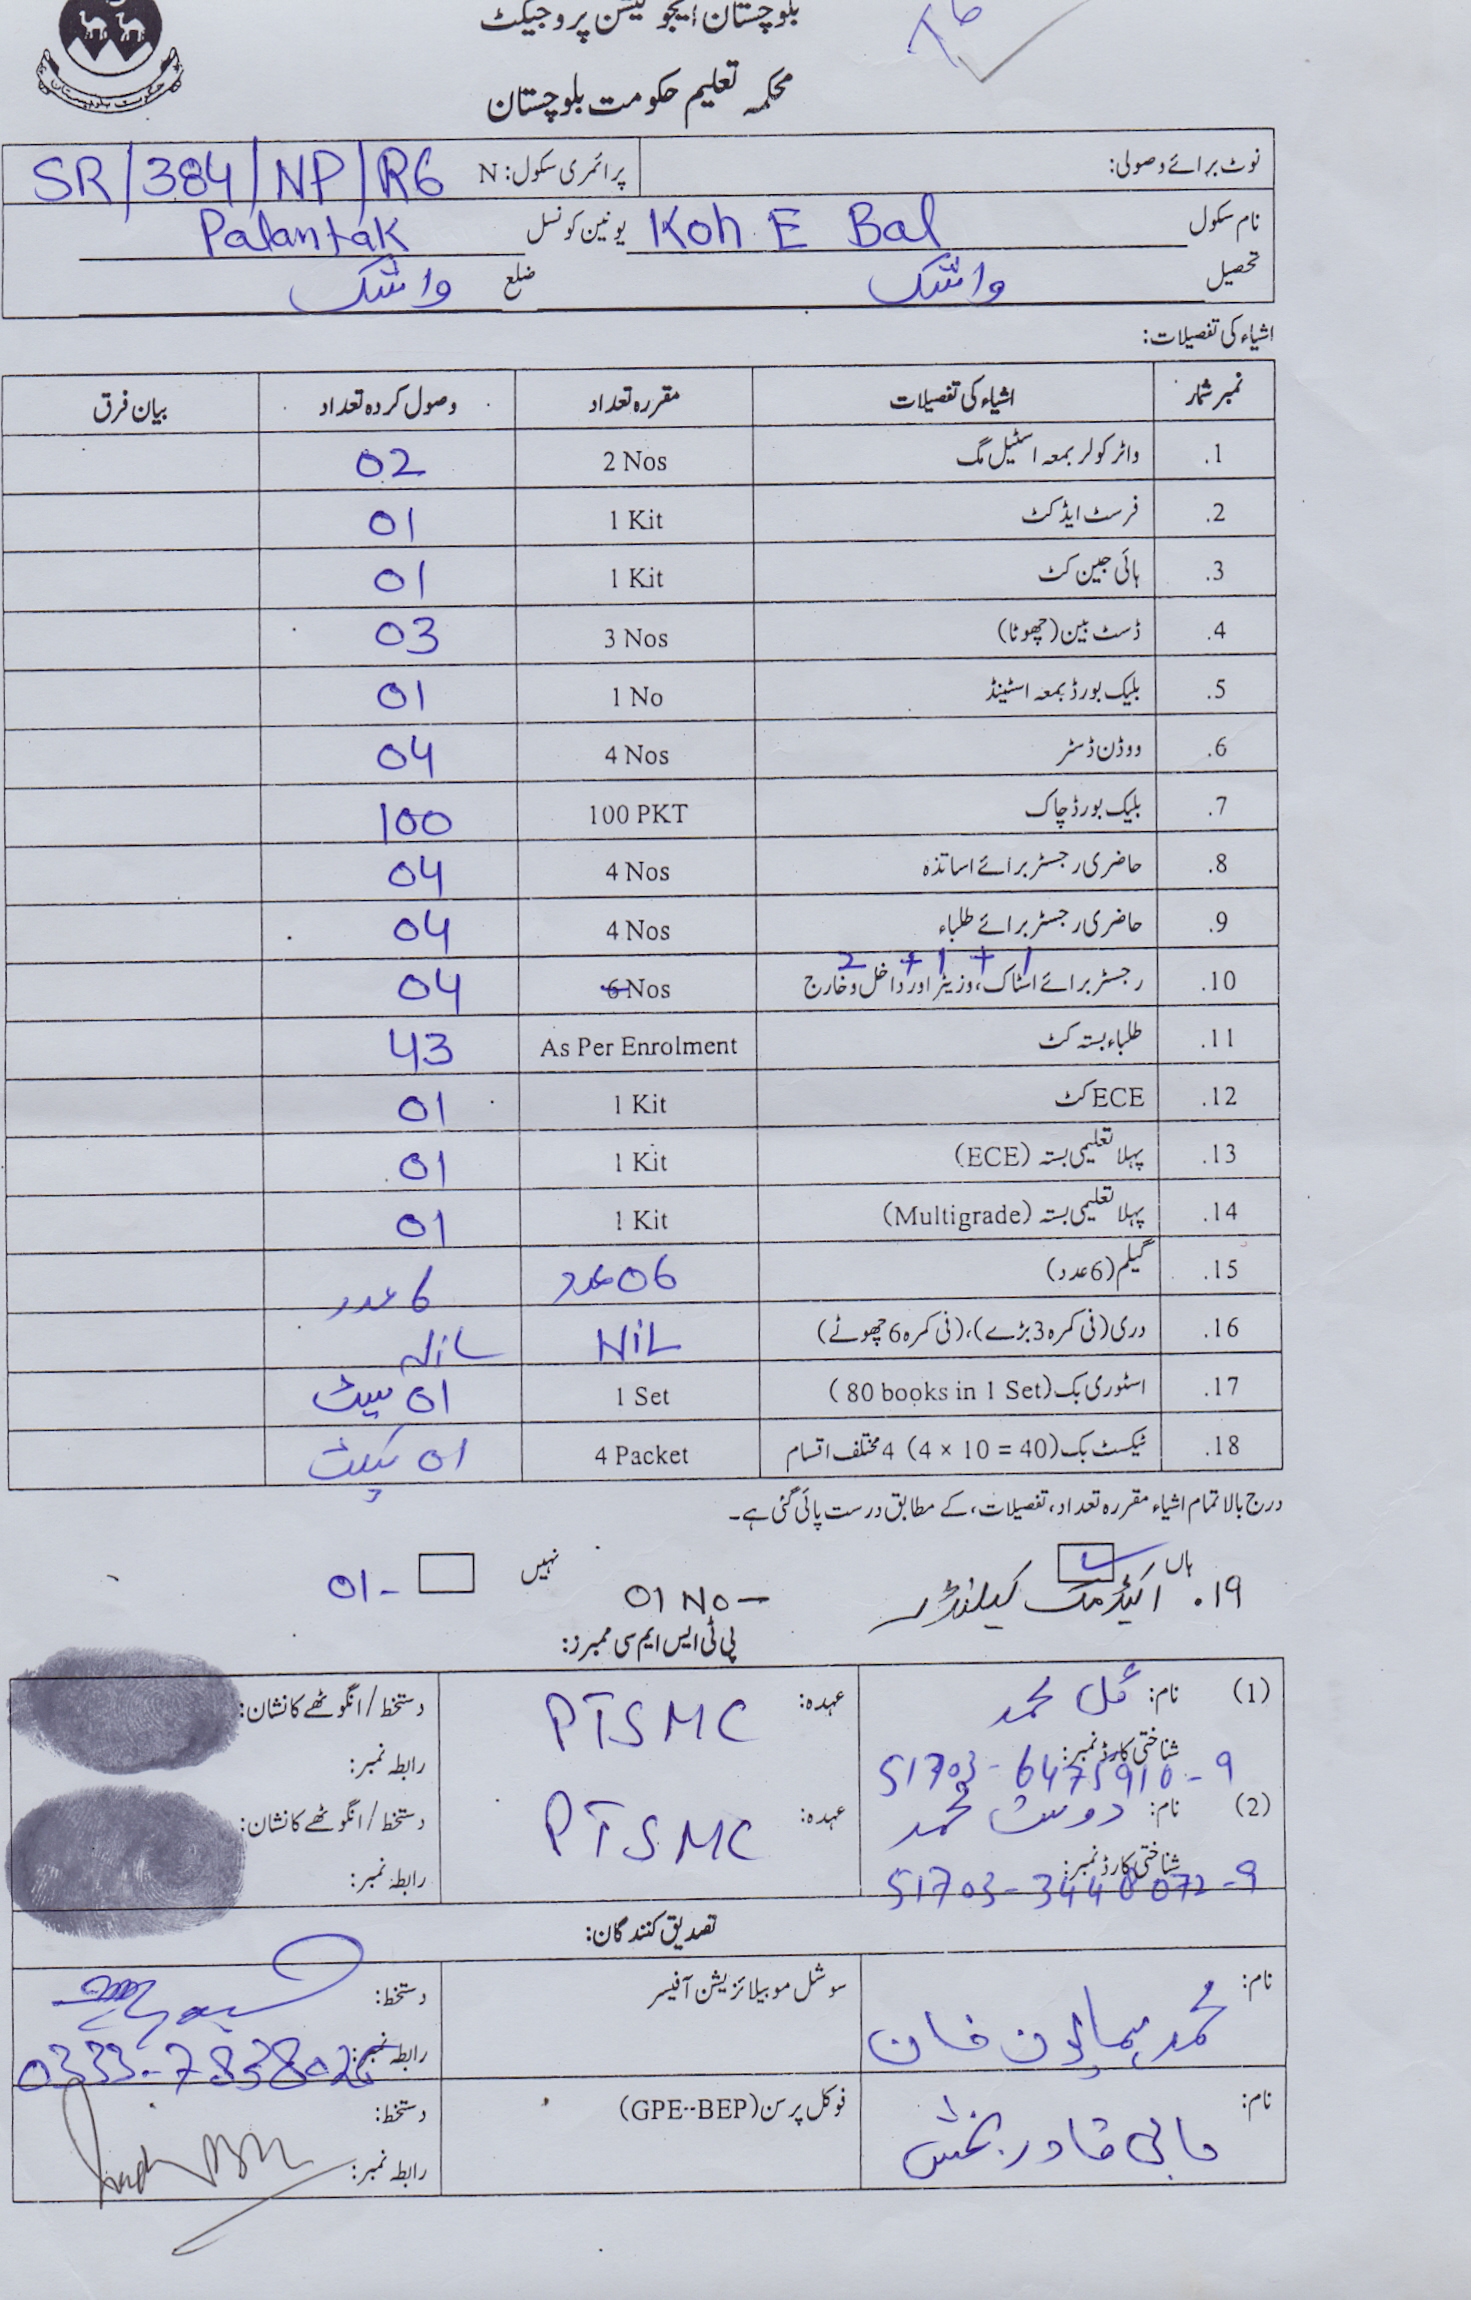 بلوچستان ایجوکیشن پروجیکٹ
محکمہ تعلیم حکومت بلوچستان
حکومت بلوچستان
نوٹ برائے وصولی: پرائمری سکول: N SR/384/NP/R6
نام سکول Koh E Bal یونین کونسل Palantak
تحصیل واشک ضلع واشک
اشیاء کی تفصیلات:
نمبر شمار اشیاء کی تفصیلات مقررہ تعداد وصول کردہ تعداد بیان فرق
.1 واٹر کولر بمعہ اسٹیل مگ 2 Nos 02
.2 فرسٹ ایڈ کٹ 1 Kit 01
.3 ہائی جین کٹ 1 Kit 01
.4 ڈسٹ بین (چھوٹا) 3 Nos 03
.5 بلیک بورڈ بمعہ اسٹینڈ 1 No 01
.6 ووڈن ڈسٹر 4 Nos 04
.7 بلیک بورڈ چاک 100 PKT 100
.8 حاضری رجسٹر برائے اساتذہ 4 Nos 04
.9 حاضری رجسٹر برائے طلباء 4 Nos 04
2 + 1 + 1
.10 رجسٹر برائے اسٹاک، وزیٹر اور داخل و خارج 6 Nos 04
.11 طلباء بستہ کٹ As Per Enrolment 43
.12 ECE کٹ 1 Kit 01
.13 پہلا تعلیمی بستہ (ECE) 1 Kit 01
.14 پہلا تعلیمی بستہ (Multigrade) 1 Kit 01
.15 گیلم (6 عدد) 06 عدد 6 عدد
.16 دری (فی کمرہ 3 بڑے)، (فی کمرہ 6 چھوٹے) NiL NiL
.17 اسٹوری بک (80 books in 1 Set) 1 Set 01 سیٹ
.18 ٹیکسٹ بک (4 × 10 = 40) 4 مختلف اقسام 4 Packet 01 پیکٹ
درج بالا تمام اشیاء مقررہ تعداد، تفصیلات، کے مطابق درست پائی گئی ہے۔
ہاں نہیں
۱۹. اکیڈمک کیلنڈر 01 No – 01 -
پی ٹی ایس ایم سی ممبرز:
(1) نام: گل محمد عہدہ: PTSMC دستخط / انگوٹھے کا نشان:
شناختی کارڈ نمبر: 51703-6475910-9 رابطہ نمبر:
(2) نام: دوست محمد عہدہ: PTSMC دستخط / انگوٹھے کا نشان:
شناختی کارڈ نمبر: 51703-3448072-9 رابطہ نمبر:
تصدیق کنندگان:
نام: محمد ہمایون خان سوشل موبیلائزیشن آفیسر دستخط:
رابطہ نمبر:
نام: حاجی قادر بخش فوکل پرسن (GPE--BEP) دستخط:
رابطہ نمبر: